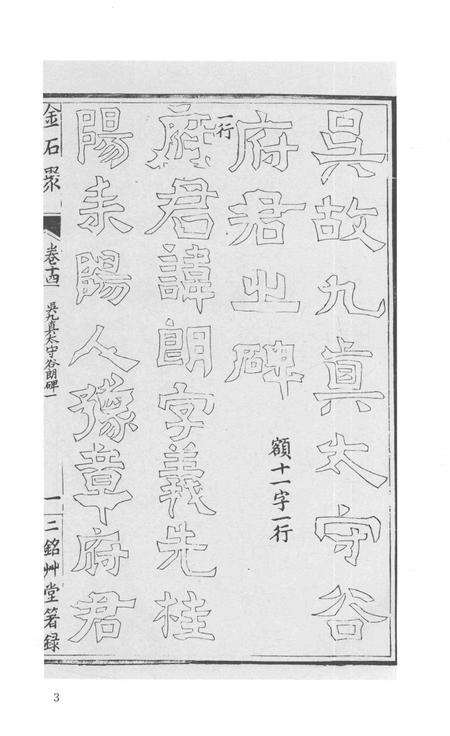 吳故九真太守谷
府君之碑
額十一字一行
一行
府君諱朗字義先桂
陽耒陽人豫章府君
金石聚
卷十四
吳九真太守谷朗碑一
一
二銘艸堂箸録
3